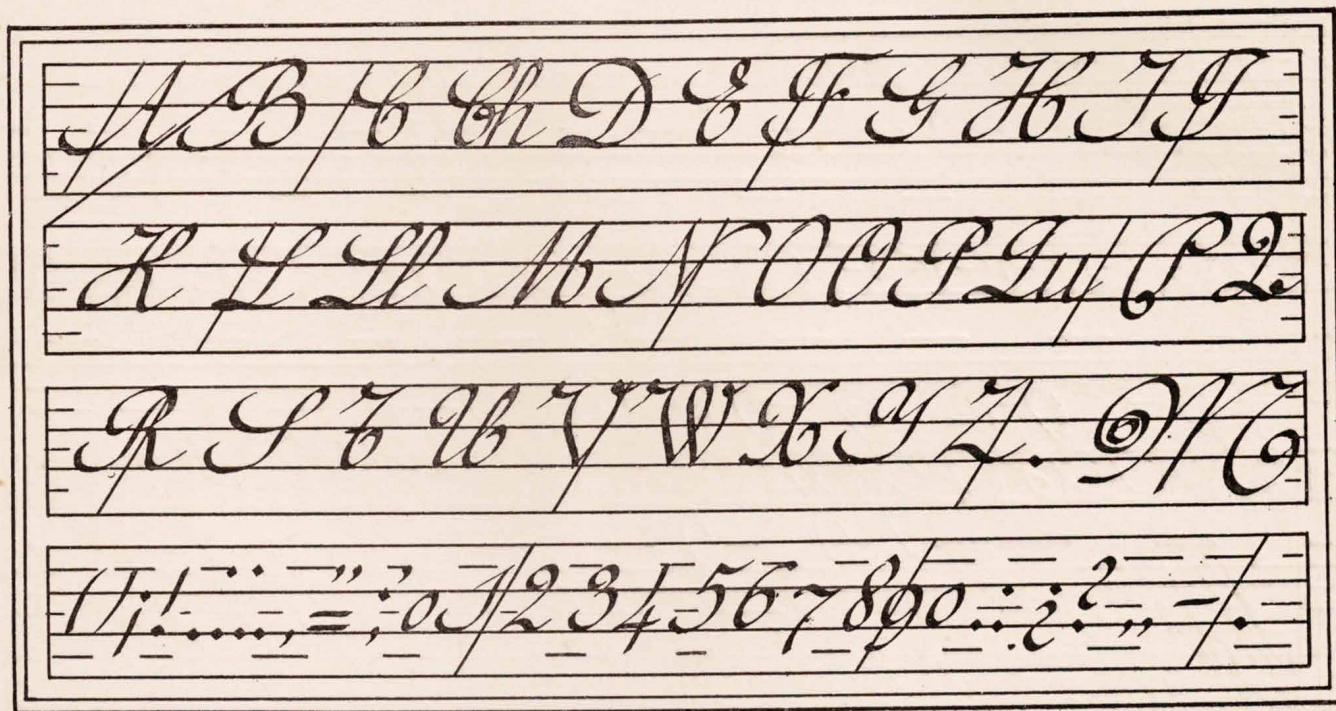 A B C Ch D E F G H I J
K L Ll M N O O P Qu P Q
R S T U V W X Y Z. M
() ¡! .... , = " ; o 1 2 3 4 5 6 7 8 9 0 . : ¿? „ - .